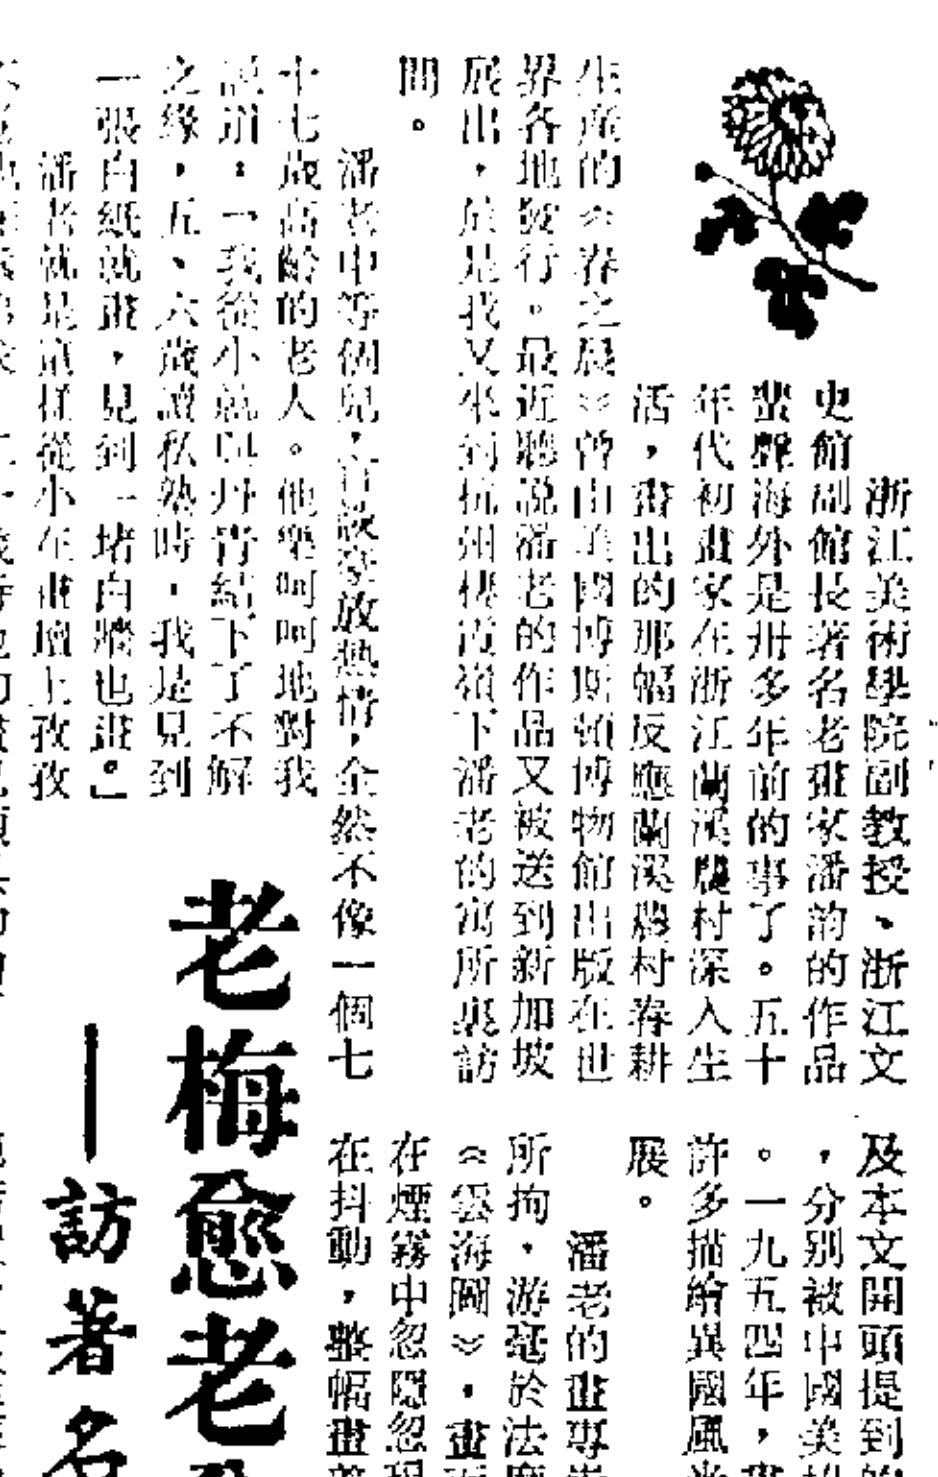 浙江美術學院副教授、浙江文
史館副館長著名老畫家潘韵的作品
蜚聲海外是卅多年前的事了。五十
年代初畫家在浙江蘭溪農村深入生
活，畫出的那幅反應蘭溪農村春耕
生産的《春之展》曾由美國博斯頓博物館出版在世
界各地發行。最近聽説潘老的作品又被送到新加坡
展出，於是我又來到杭州棲霞嶺下潘老的寓所裏訪
問。
潘老中等個兒，豪放熱情，全然不像一個七
十七歲高齡的老人。他樂呵呵地對我
説道：「我從小就與丹青結下了不解
之緣，五、六歲讀私塾時，我是見到
一張白紙就畫，見到一堵白牆也畫。」
潘老就是這樣從小在畫壇上孜孜
老梅愈老
——訪著名
及本文開頭提到
，分别被中國美
。一九五四年，
許多描繪異國風
展。
潘老的畫專
所拘，游毫於法
《雲海圖》，畫
在煙霧中忽隱忽現
在抖動，整幅畫